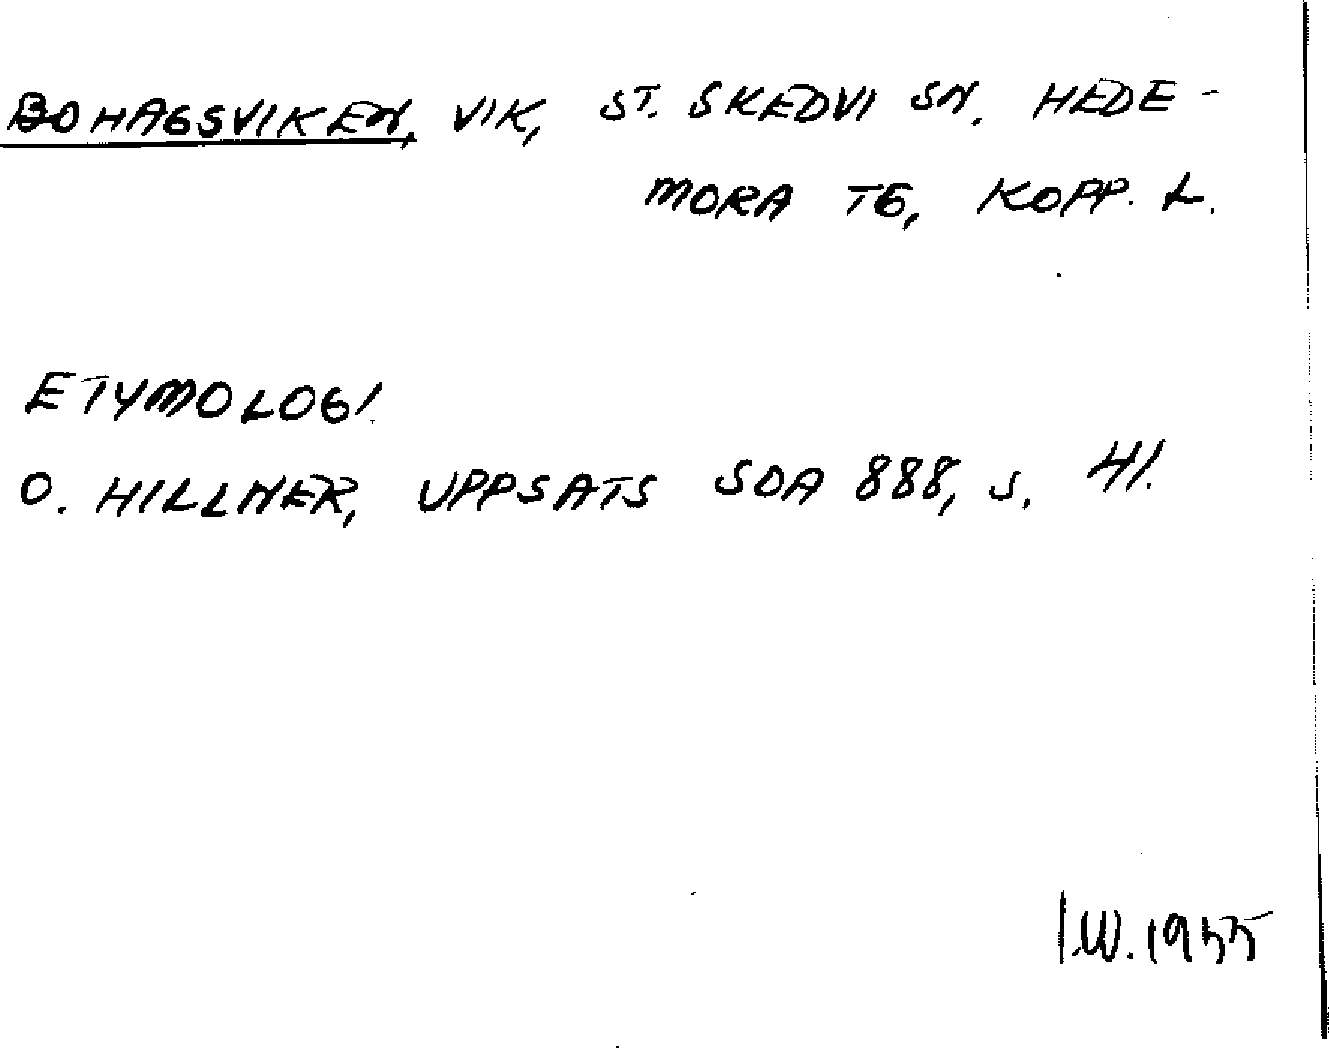 BOHAGSVIKEN, VIK, ST. SKEDVI SN. HEDE-
MORA TG, KOPP. L.
ETYMOLOGI.
O. HILLNER, UPPSATS SOA 888, s. 41.
I.W. 1955